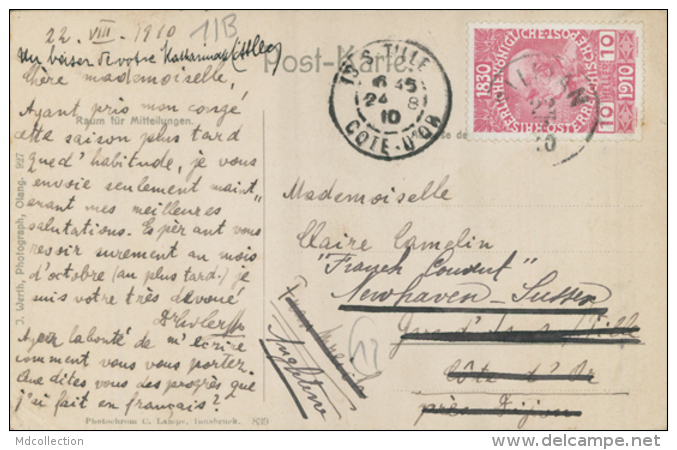 22. VIII. 1910
11B
Un baiser de votre Katharina
Post-Karte
Chère mademoiselle,
Ayant pris mon congé
cette saison plus tard
Raum für Mitteilungen.
que d'habitude, je vous
envoie seulement maint
enant mes meilleures
salutations. Espérant vous
revoir surement au mois
d'octobre (au plus tard) je
suis votre très dévoué
Ayez la bonté de m'écrire
comment vous vous portez.
Que dites vous des progrès que
j'ai fait en français?
J. Werth, Photograph, Olang. 927
Photochrom C. Lampe, Innsbruck. 839
IS-S-TILLE
6 45
24 8
10
COTE-D'OR
1830
1910
KAISERL. KÖNIGLICHE ÖSTERREICHISCHE POST
10 HELLER 10
Mademoiselle
Claire Camelin
"French Convent"
Newhaven - Sussex
Côte d'Or
près Dijon
Angleterre
12
Mdcollection
www.delcampe.net